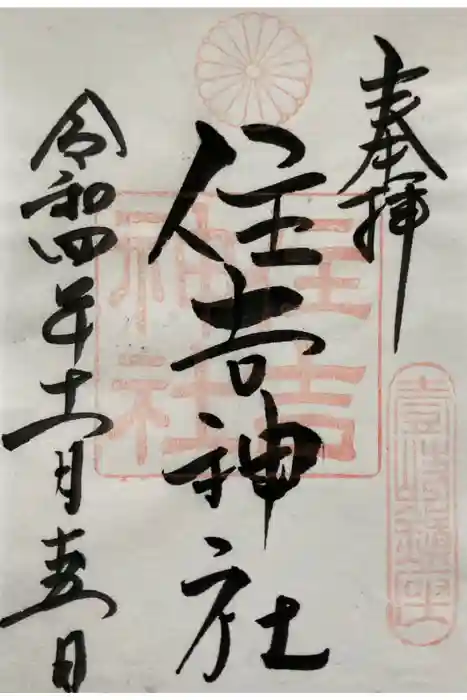 奉拝
住吉神社
令和四年十一月 日
住吉
神社